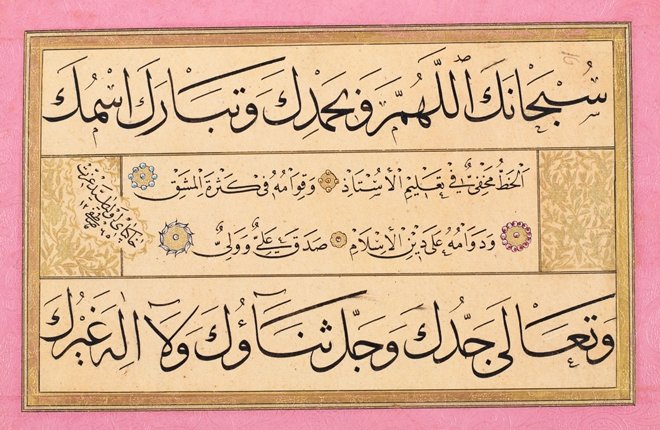 سبحانك اللهم وبحمدك وتبارك اسمك
الخط مخفي في تعليم الاستاذ وقوامه في كثرة المشق
ودوامه على دين الاسلام صدق علي وولي
وتعالى جدك وجل ثناؤك ولا اله غيرك